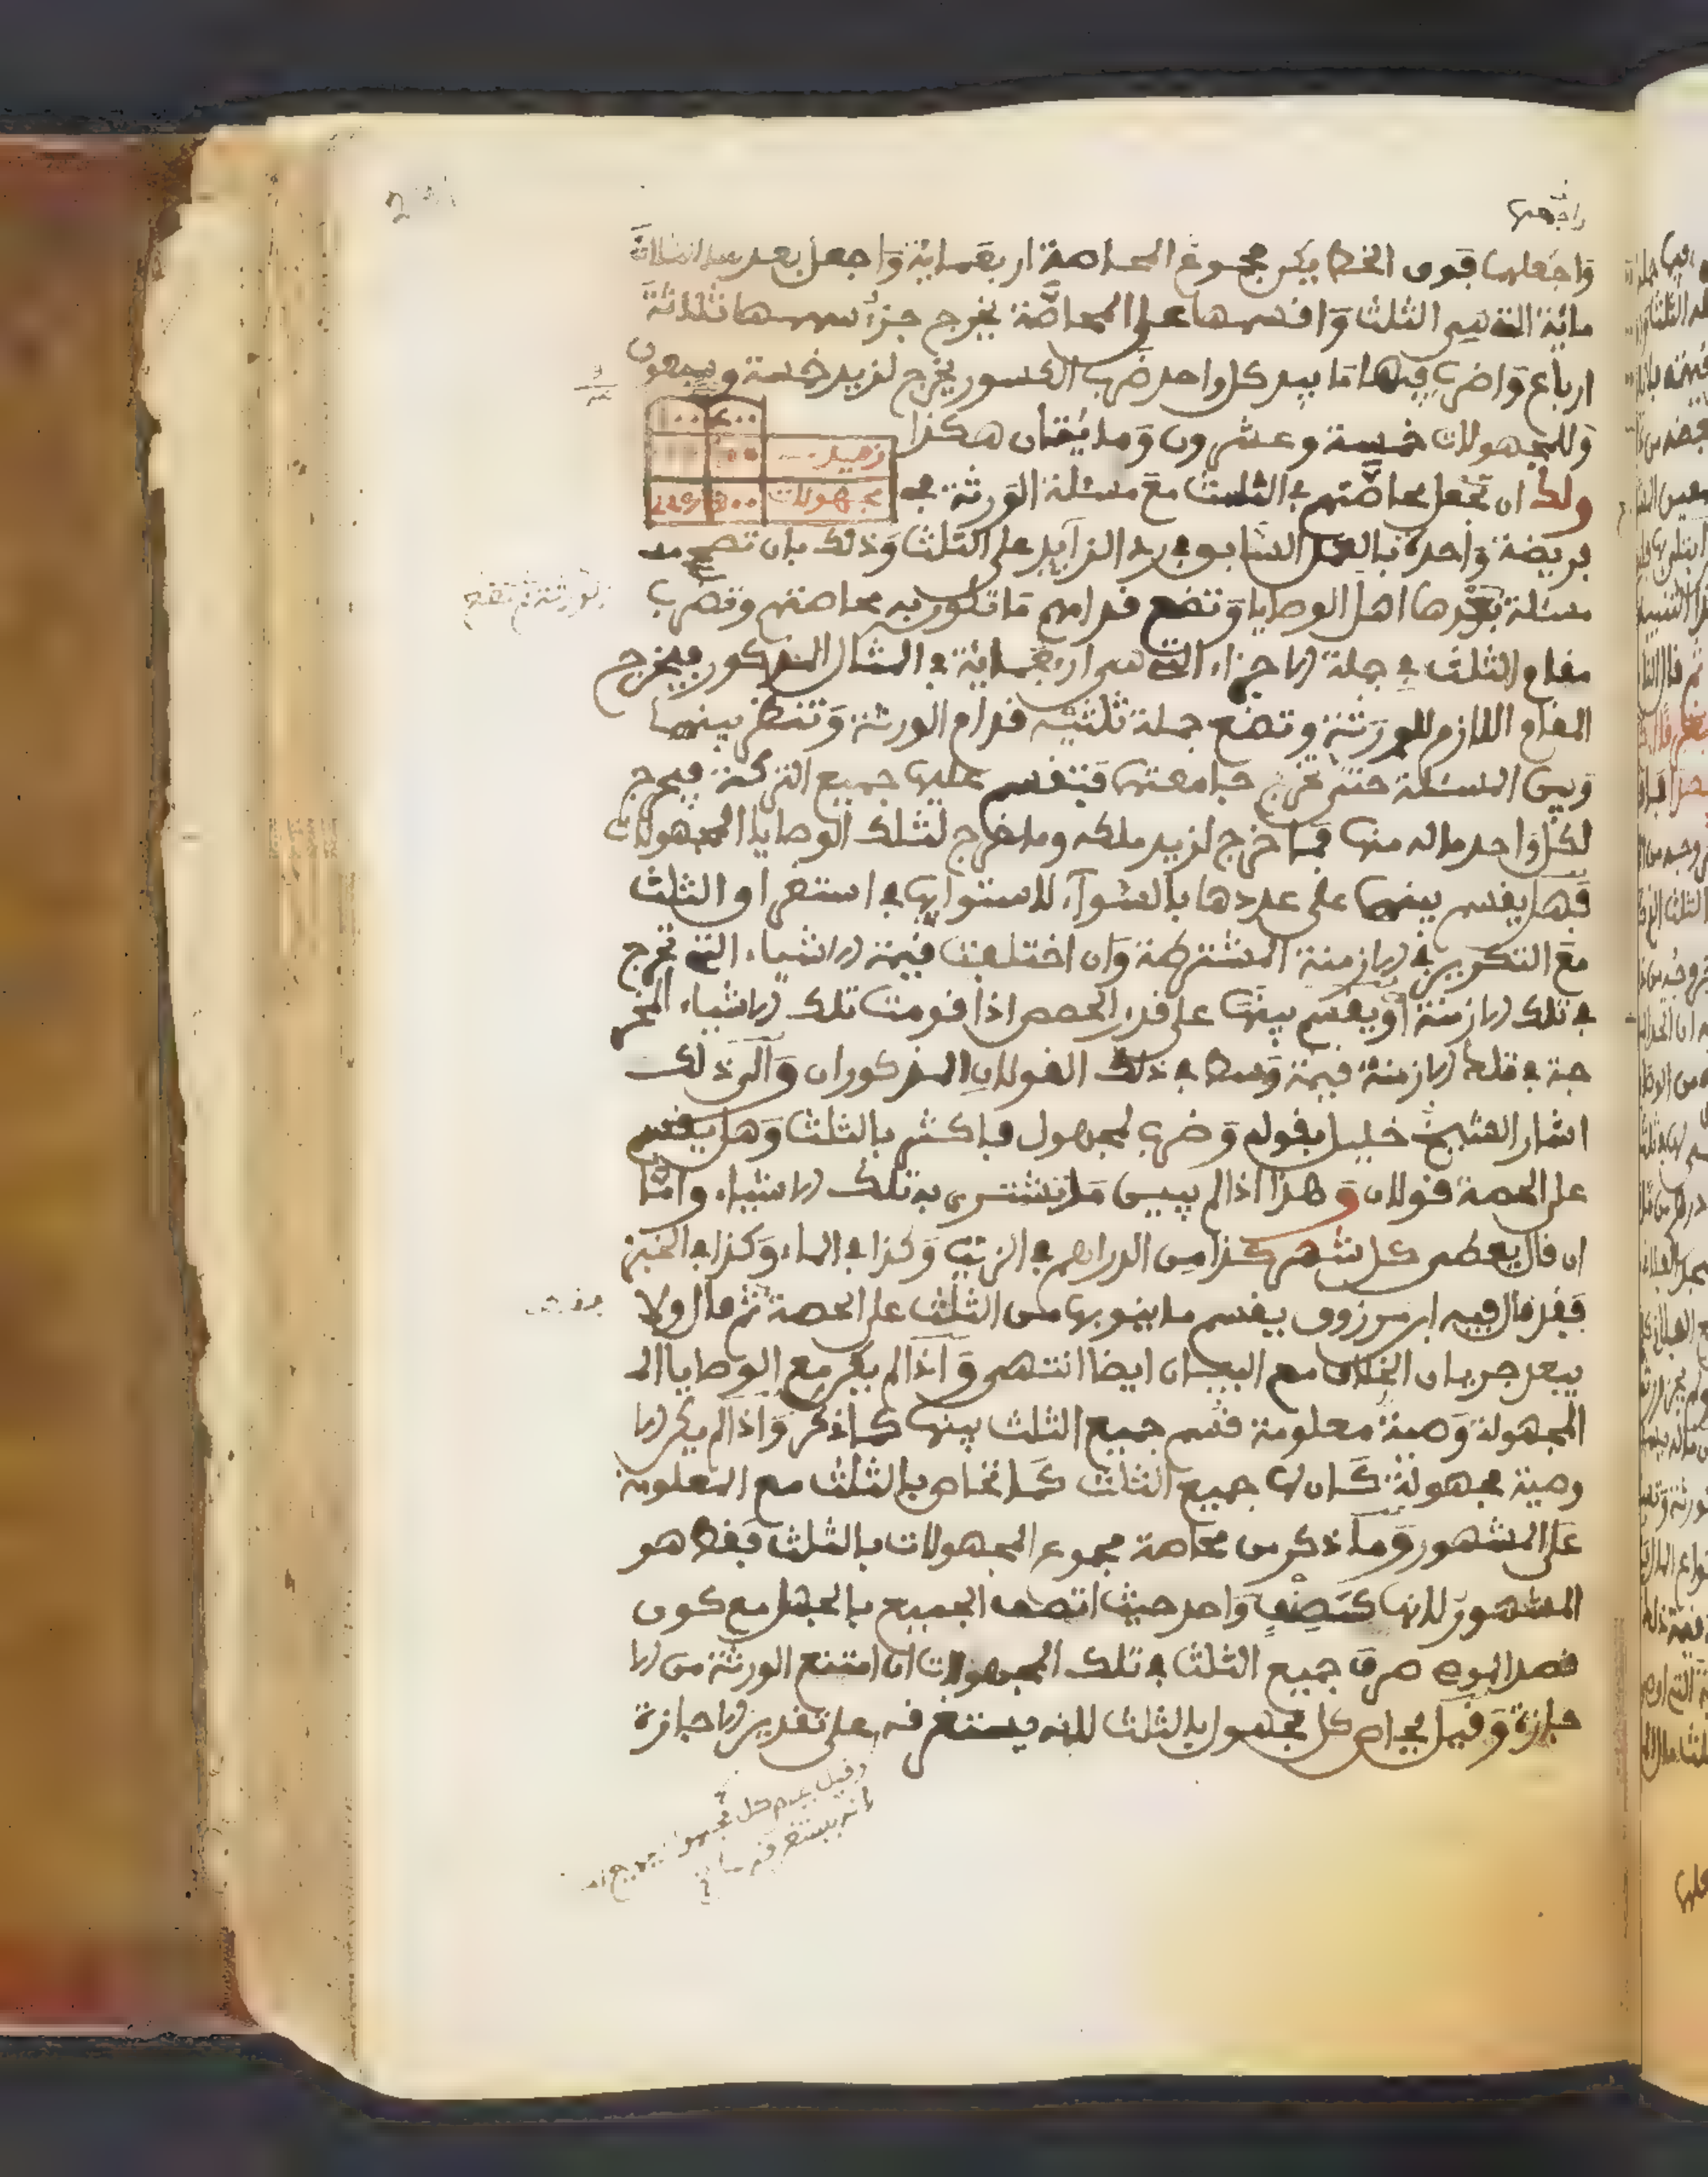 واجمعها
وَاجْعلها فوق الخط يكن مجموع المحاصة اربعماية وَاجعل بعد
ماية التي هي الثلث وَاقسمها على المحاصَّة يخرج جزء سهمها ثلاثة
ارباع وَاضرب فيها مَا بيد كل واحد ضرب الكسور يخرج لزيد خمسة وسبعون
وَللمجهولات خمسة وعشرون وَمايتان هكذا
زيد
مجهولات
ولك ان تجعل محاصَّتهم في الثلث معَ مسئلة الوَرثة في
فريضة وَاحدة بالعمل السَّابق في رد الزآيد على الثلث وَذلك بان تصح
مسئلة بعْدها اهل الوصايا وَتضع قدامهم مَا تكون به محاصتهم وتضرب
الورثة ثم تضع
مقام الثلث في جملة الاجزاء التي هي اربعماية في المثال المذكور فيخرج
المقام اللازم للورَثة وتضع جملة ثلثيه قدام الورثة وَتنظر بينها
وَبين المسئلة حتى تخرج جامعتها فتقسم عليها جميع التركة فيخرج
لكل وَاحد ماله منها فما خرج لزيد ملكه وما خرج لتلك الوصايا المجهولات
فَهل يقسم بينها على عددها بالسّوآء لاستوايها في استغراق الثلث
معَ التكرير في الازمنة المشترطة وَان اختلفت قيمة الاشياء التي تخرج
في تلك الازمنة اوْ يقسم بينها على قدر الحصص اذا قومت تلك الاشياء المخر
جة في تلك الازمنة قيمة وَسطا في ذلك القولان المذكوران وَالى ذلك
اشار الشيخ خليل بقوله وَضرب لمجهول فاكثر بالثلث وَهل يقسم
على الحصة قولان وَهذا اذا لم يبين مَا تشترى به تلك الاشياء وامَّا
ان قال يعطى كل شهر كذا من الدراهم في الزيت وَكذا في الماء وَكذا في الخبز
فَقد قال فيه ابن مرزوق يقسم ما ينوبها من الثلث على الحصة ثم قال ولا
يبعد جريان الخلاف مع البيان ايضا انتهى وَاذا لم يكن مع الوصايا الـ
المجهولة وَصية معلومة قسم جميع الثلث بينها كما ذكر وَاذا لم يكن الا
وصية مجهولة كَان لها جميع الثلث كَما تحاص بالثلث مع المعلومة
عَلى المشهور وَمَا ذكر من محاصة مجموع المجهولات بالثلث فقط هو
المشهور لانها كَصِنْفٍ وَاحد حيث اتصف الجميع بالجهل مع كون
قصد الموصي صرف جميع الثلث في تلك المجهولات ان امتنع الورثة من الا
جازة وَقيل يحاص كل مجهول بالثلث لانه يستغرقه على تقدير الاجازة
وقيل يقدم كل مجهول
لانه يستغرقه